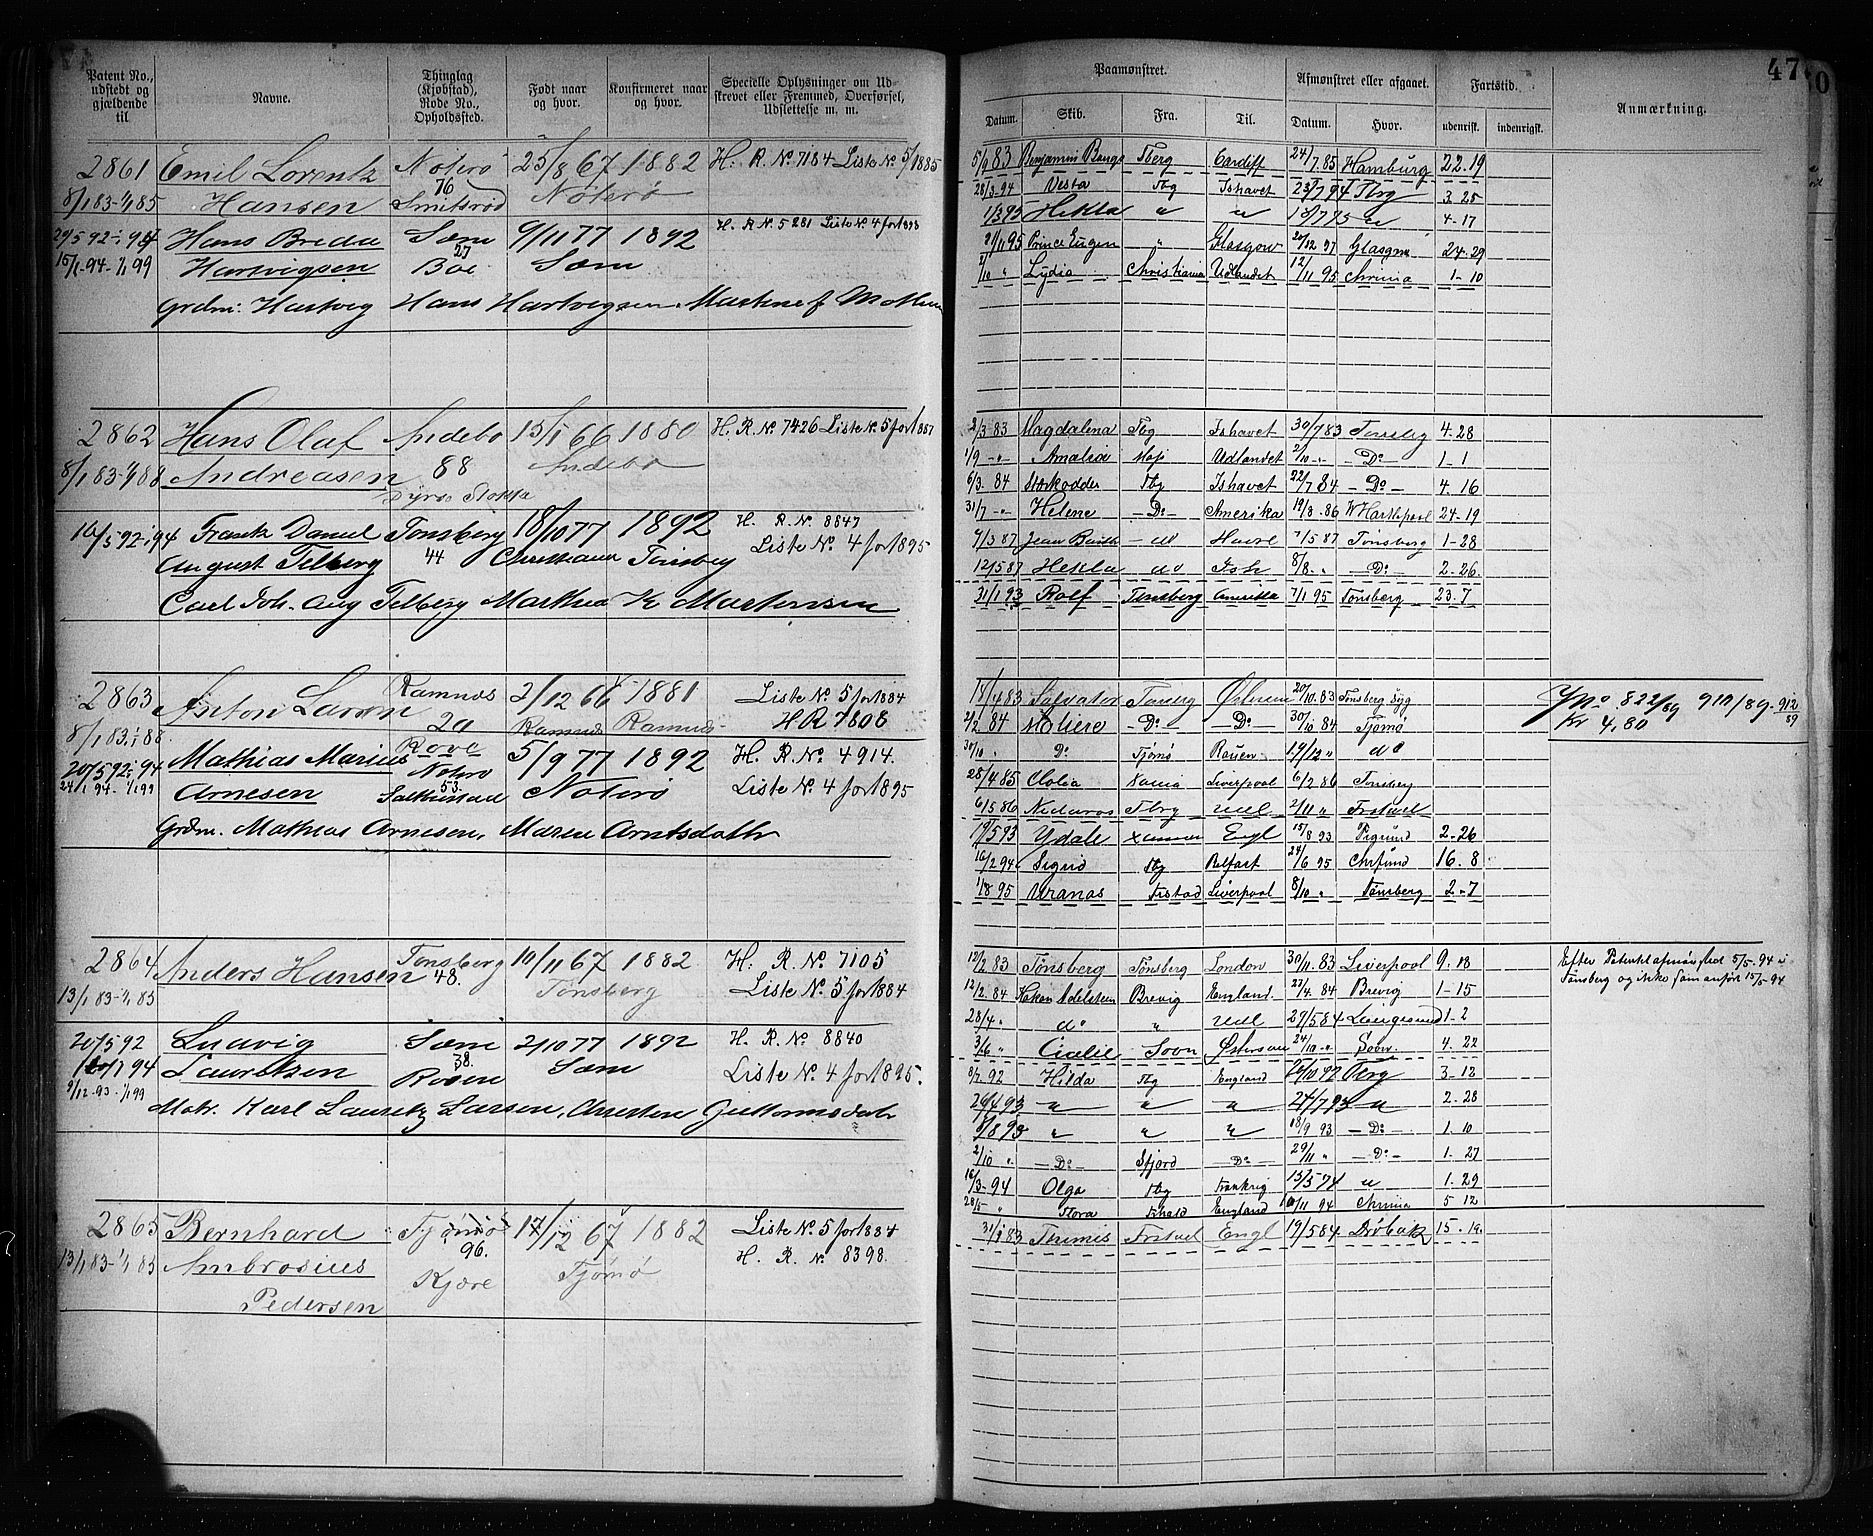 Patent No., udstedt og gjældende til
Navne.
Thinglag (Kjøbstad), Rode No., Opholdssted.
Født naar og hvor.
Konfirmeret naar og hvor.
Specielle Oplysninger om Udskrevet eller Fremmed, Overførsel, Udslettelse m. m.
2861 Emil Lorentz Nøterø 25/8 67 1882 H. R. No 7184 Liste No 5/1885
8/1 83-1/1 85 Hansen 76 Smitsrød Nøterø
29/5 92-1/1 94 Hans Breda Sæm 9/11 77 1892 H. R No 5281 Liste No 4 for 1893
15/1-94-1/1 99 Hartvigsen 27 Boe Sæm
Grdm: Hartvig Hans Hartvigsen
2862 Hans Olaf Andebo 15/1 66 1880 H. R. No 7426 Liste No. 5 for 1887
8/1 83-1/1 88 Andreasen 88 Andebo
16/5 92-1/1 94 Frantz Daniel Tønsberg 18/10 77 1892 H. R. No 8847
August Telberg 44 Christiania Tønsberg Liste No. 4 for 1895
Carl Joh. Aug Telberg Mathea K Mortensen
2863 Anton Larsen Ramnæs 2/12 66 1881 Liste No 5 for 1884
8/1 83-1/1 88 20 Ramnæs Ramnæs H R 7808
Rove
20/5 92-1/1 94 Mathias Marius Nøterø 5/9 77 1892 H. R. No 4914.
24/1 94-1/1 99 Arnesen 53. Nøterø Liste No. 4 for 1895
Grdm. Mathias Arnesen, Maren Arntsdattr
2864 Anders Hansen Tønsberg 10/11 67 1882 H. R. No 7105
13/1 83-1/1 85 48. Tønsberg Liste No. 5 for 1884
20/5 92 Ludvig Sæm 2/10 77 1892 H. R. No 8840
1/1 94 Lauritsen 38. Sæm Liste No. 4 for 1895.
9/12-93-1/1 99
Matr. Karl Lauritz Larsen, Guttormsdatr
2865 Bernhard Tjømø 17/12 67 1882 Liste No. 5 for 1884
13/1 83-1/1 85 Ambrosius 96. Kjære Tjømø H. R. No 8398.
Pedersen
47
Paamønstret.
Afmønstret eller afgaaet.
Fartstid.
Anmærkning.
Datum. Skib. Fra. Til. Datum. Hvor. udenrikst. indenrigst.
5/1 83 Benjamin Bangs Tberg Cardiff 24/7 85 Hamburg 22-19
28/3-94 Vesta Tbg Ishavet 23/7 94 Tbrg 3-25
1/3 95 Hekla " " " 4-17
21/11 95 Prince Eugen " Glasgow 20/12 97 Glasgow 24-29
2/10 " Lydia Christiania Udlandet 12/11 95 Chrania 1-10
2/3 83 Magdalena Tbg Ishavet 30/7 83 Tønsbg 4-28
1/9 -"- Amalia Udlandet 2/10 -"- -Do- 1-1
6/3 84 Stærkodder Tbg Ishavet 22/7 84 -Do- 4-16
31/7 -"- Helene -Do- Amerika 19/8-86 W Hartlepool 24-19
4/3 87 -do Havre 1/5 87 Tønsberg 1-28
12/5 87 Hekla do Ish 8/8 " -Do- 2-26
31/1 93 Rolf Tønsberg Amerika 7/1 95 Tønsberg 23-7
18/4 83 Salvator 20/10 83
2/2 84 Moliere -Do- -Do- 30/10 84 Tjømø
30/10 " Do Tjømø Rouen 19/12 " do
25/4 85 Clolia Liverpool 6/2 86 Tønsberg
6/5 86 Nidaros Tbrg Udl 2/11 "
19/5 93 Ydale Engl 15/8 93 2-26
16/2 94 Sigrid Tbg Belfast 24/6 95 16-8
1/8 95 Uranas Frstad Liverpool 8/10 " Tønsberg 2-7
12/2 83 Tønsberg Tønsberg London 30/11 83 Liverpool 9-18
12/2 84 Hakon Adelsteen Brevig England. 23/4 84 Brevig 1-15
28/4 " do " Udl 29/5 84 Langesund 1-2
3/6 " Cicilie 24/10 -"- 4-22
8/7 92 Hilda Tbg England Tbrg 3-12
" " " 24/7 93 " 2-28
8/8 93 " " " 18/9 93 -Do- 1-10
2/10 " -Do- -Do- 29/11 " -Do- 1-27
16/3-94 Olga Tbg Frankrig " 1-29
28/5 " Flora England 10/11 94 Chrania 5-12
Themis Frstad Engl 19/5 84 Drøbak 15-19
822/89 910/89-912/89
Kr 4,80
Efter Patentet afmønstret 5/5-94 i
Tønsberg og ikke som anført 15/5-94